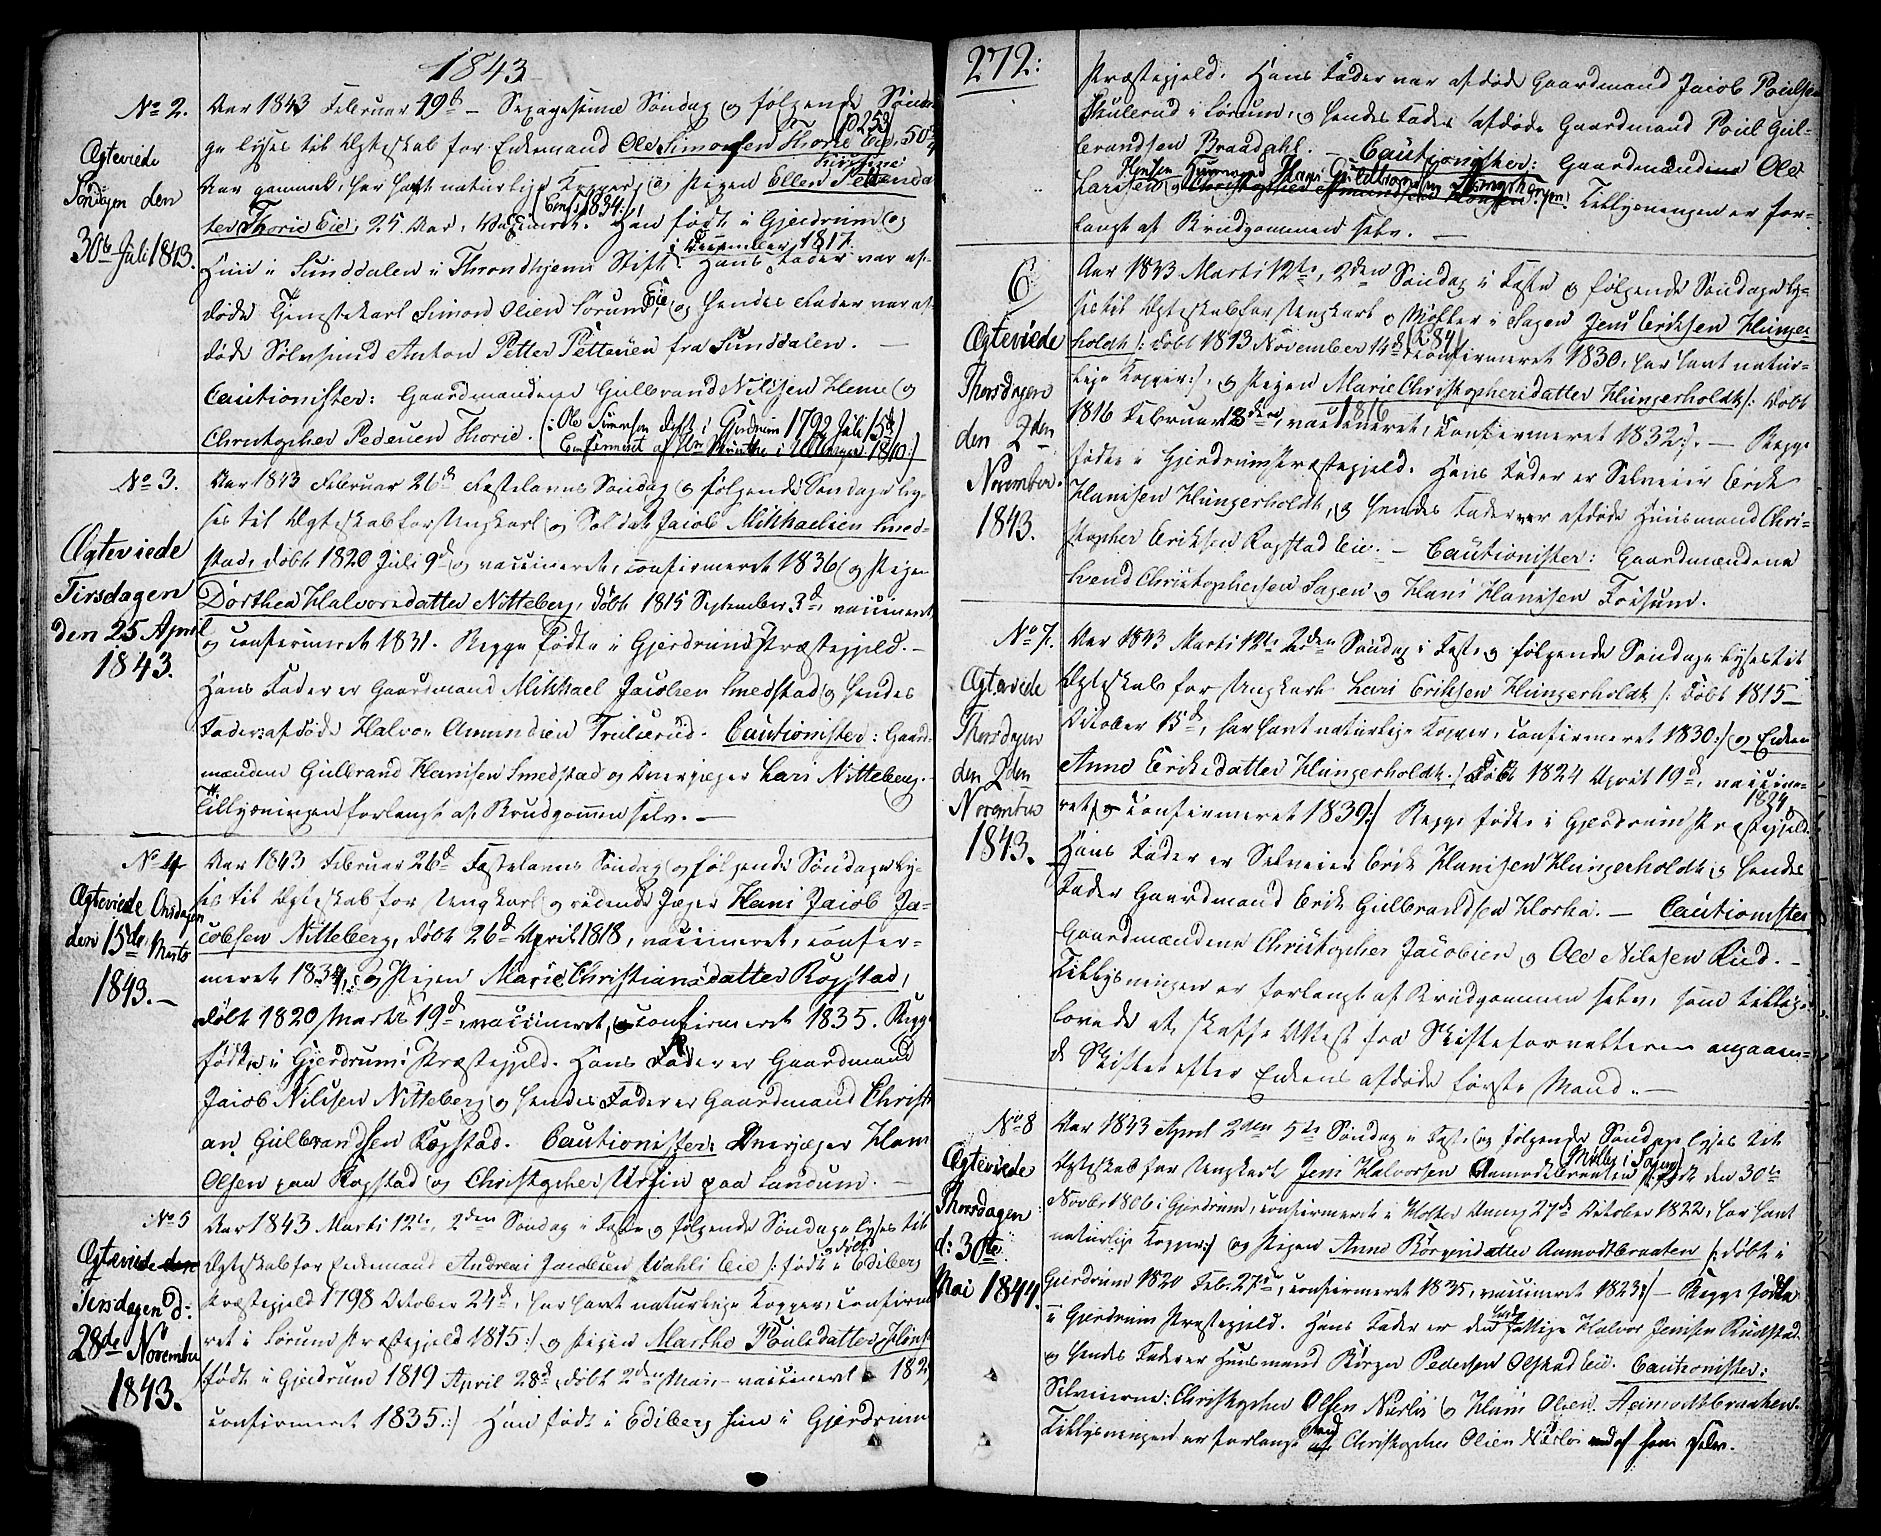 1843
No 2.
Ægteviede
Søndagen den
30te Juli 1843.
Aar 1843 Februar 19d – Sexagesimæ Søndag og følgende Sønda-
ge lyses til Ægteskab for Enkemand Ole Simonsen Thorie Eie, 50
(p 253)
Aar gammel, har havt naturlige Kopper, og Pigen Ellen Kirstine Pettersda
ter Thorie Eie, 25 Aar, vaccineret. Han født i Gjerdrum og
(Conf. 1834:)
Hun i Sunddalen i Throndhjems Stift. Hans Fader var af-
i December 1817.
døde Tjenestekarl Simon Olsen Sørum Eie, og hendes Fader var af-
døde Anton Petter Pettersen fra Sunddalen. –
Cautionister: Gaardmændene Gulbrand Nilssen Heme og
Christopher Pedersen Thorie. (: Ole Simonsen født i Gjerdrum 1792 Juli 15d
Confirmeret af Hr i Ullensager 1810:)
No 3.
Ægteviede
Tirsdagen
den 25 April
1843.
Aar 1843 Februar 26d Fastelavns Søndag og følgende Søndage ly-
ses til Ægteskab for Ungkarl og Soldat Jacob Mikkaelsen Smed-
stad, døbt 1820 Juli 9d og vaccineret, confirmeret 1836 og Pigen
Dorthea Halvorsdatter Nitteberg, døbt 1815 September 3d, vaccineret
og confirmeret 1831. Begge fødte i Gjerdrums Præstegjeld. –
Hans Fader er Gaardmand Mikkael Jacobsen Smedstad og hendes
Fader afdøde Halvor Amundsen Trulserud. Cautionister: Gaard-
mændene Gulbrand Hansen Smedstad og Lars Nitteberg.
Tillysningen forlangt af Brudgommen selv. –
No 4
Ægteviede Onsdagen
den 15de Marts
1843. –
Aar 1843 Februar 26d Fastelavns Søndag og følgende Søndage ly-
ses til Ægteskab for Ungkarl og ridende Jæger Hans Jacob Ja-
cobsen Nitteberg, døbt 26d April 1818, vaccineret, confir-
meret 1834, og Pigen Marie Christiansdatter Rogstad,
døbt 1820 Marts 19d, vaccineret, confirmeret 1835. Begge
fødte i Gjerdrums Præstegjeld. Hans Fader er Gaardmand
Jacob Nilssen Nitteberg og hendes Fader er Gaardmand Christi
an Gulbrandsen Rogstad. Cautionister: Hans
Olsen paa Rogstad og Christopher Ursin paa Landum. –
No 5
Ægteviede den
Tirsdagen d:
28de November
1843.
Aar 1843 Marts 12te, 2den Søndag i Faste og følgende Søndage lyses til
Ægteskab for Enkemand Andreas Jacobsen Wahls Eie /: født og døbt i Edsberg
Præstegjeld 1798 October 24d, har havt naturlige Kopper, confirme
ret i Sørum Præstegjeld 1815:/ og Pigen Marthe Poulsdatter
født i Gjerdrum 1819 April 28d, døbt 2den Mai, – vaccineret 182
confirmeret 1835:/ Han født i Edsberg hun i Gjerdrum
272:
Præstegjeld. Hans Fader var afdøde Gaardmand Jacob Poulsen
Skulerud i Sørum, og hendes Fader afdøde Gaardmand Poul Gul-
brandsen Braadahl. – Cautionister: Gaardmændene Ole
Larssen og Christopher
Tillysningen er for-
langt af Brudgommen selv. –
6
Ægteviede
Thorsdagen
den 2den
November
1843.
Aar 1843 Marts 12te, 2den Søndag i Faste og følgende Søndage ly-
ses til Ægteskab for Ungkarl og Møller i Sagen Jens Eriksen Hunger-
holdt /: døbt 1813 November 14d, confirmeret 1830, har havt natur-
(284)
lige Kopper:/, og Pigen Marie Christophersdatter Hungerholdt /: døbt
1816 Februar 18de, vaccineret 1816, confirmeret 1832:/. – Begge
fødte i Gjerdrums Præstegjeld. Hans Fader er Selveier Erik
Hansen Hungerholdt, og hendes Fader var afdøde Huusmand Chri-
stopher Eriksen Rogstad Eie. – Cautionister: Gaardmændene
Svend Christophersen Sagen og Hans Hansen Fossum.
No 7.
Ægteviede
Thorsdagen
den 2den
November
1843.
Aar 1843 Marts 12te 2den Søndag i Faste og følgende Søndage lyses til
Ægteskab for Ungkarl Lars Eriksen Hungerholdt /: døbt 1815
October 15d, har havt naturlige Kopper, confirmeret 1830:/ og Enken
Anne Eriksdatter Hungerholdt /: døbt 1824 April 19d, vaccine-
ret 1824, confirmeret 1839:/ Begge fødte i Gjerdrums Præstegjeld.
Hans Fader er Selveier Erik Hansen Hungerholdt, og hendes
Fader Gaardmand Erik Gulbrandsen – Cautionister
Gaardmændene Christopher Jacobsen og Ole Nilssen Rud. –
Tillysningen er forlangt af Brudgommen selv, som tillige
lovede at skaffe Attest fra Skifteforvalteren angaaen-
de Skiftet efter Enkens afdøde første Mand. –
No 8
Ægteviede
Thorsdagen
d: 30te
Mai 1844.
Aar 1843 April 2den 5te Søndag i Faste og følgende Søndage lyses til
Ægteskab for Ungkarl Jens Halvorsen Aamodtbraaten /: født den 30te
(Møller i Sagen)
Novbr 1806 i Gjerdrum, confirmeret i Holter 27d October 1822, har havt
naturlige Kopper:/ og Pigen Anne Børgersdatter Aamodtbraaten /: døbt i
Gjerdrum 1820 Feb. 27de, confirmeret 1835, vaccineret 1823:/ – Begge fødte
i Gjerdrum Præstegjeld. Hans Fader er den fattige Halvor Jenssen Rudstad
og hendes Fader er Huusmand Børger Pedersen Olstad Eie. Cautionister:
Selveierne: Christopher Olsen Nærløs og Hans Olsen Aamodtbraaten.
Tillysningen er forlangt Christopher Olsen Nærløs selv.